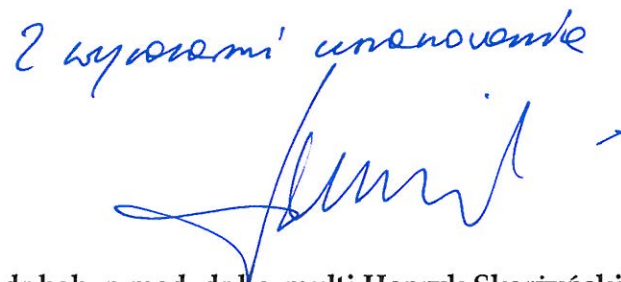 Z wyrazami uszanowania
dr hab. n. med. dr h.c. multi Henryk Skarżyński